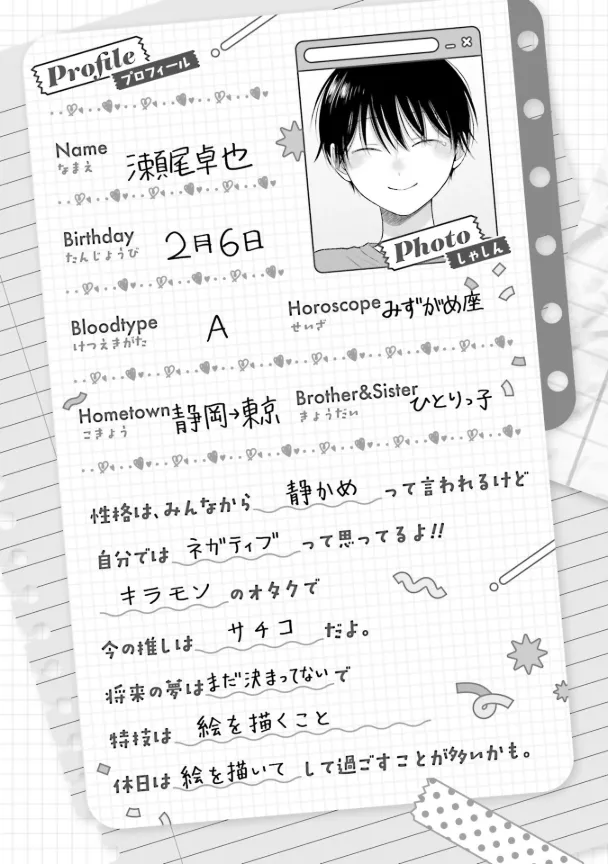 Profile
プロフィール
Name
なまえ
瀬尾卓也
Birthday
たんじょうび
2月6日
Photo
しゃしん
Bloodtype
けつえきがた
A
Horoscope
せいざ
みずがめ座
Hometown
こきょう
静岡→東京
Brother&Sister
きょうだい
ひとりっ子
性格は、みんなから静かめって言われるけど
自分ではネガティブって思ってるよ!!
キラモンのオタクで
今の推しはサチコだよ。
将来の夢はまだ決まってないで
特技は絵を描くこと
休日は絵を描いてして過ごすことが多いかも。